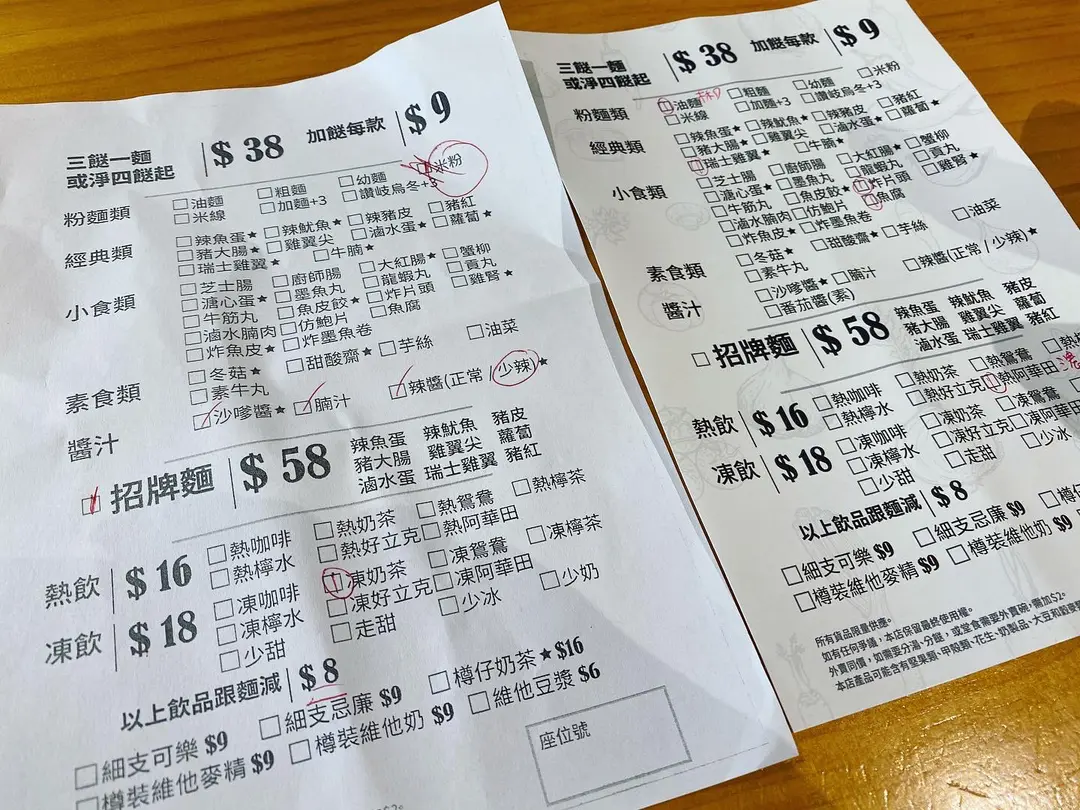 三餸一麵
或淨四餸起
$ 38
加餸每款
$ 9
粉麵類
油麵
粗麵
幼麵
米粉
米線
加麵+3
讚岐烏冬+3
經典類
辣魚蛋★
辣魷魚★
辣豬皮
豬紅
豬大腸★
雞翼尖
滷水蛋★
蘿蔔★
瑞士雞翼★
牛腩★
小食類
芝士腸
廚師腸
大紅腸★
蟹柳
溏心蛋★
墨魚丸
龍蝦丸
貢丸
牛筋丸
魚皮餃★
炸片頭
雞腎★
滷水腩肉
仿鮑片
魚腐
炸魚皮★
炸墨魚卷
素食類
冬菇★
甜酸齋★
芋絲
油菜
素牛丸
醬汁
沙嗲醬★
腩汁
辣醬(正常 / 少辣)★
招牌麵
$ 58
辣魚蛋 辣魷魚 豬皮
豬大腸 雞翼尖 蘿蔔
滷水蛋 瑞士雞翼 豬紅
熱飲
$ 16
熱咖啡
熱奶茶
熱鴛鴦
熱檸茶
熱檸水
熱好立克
熱阿華田
凍飲
$ 18
凍咖啡
凍奶茶
凍鴛鴦
凍檸茶
凍檸水
凍好立克
凍阿華田
少甜
走甜
少冰
少奶
以上飲品跟麵減
$ 8
細支可樂 $9
細支忌廉 $9
樽仔奶茶★$16
樽裝維他麥精 $9
樽裝維他奶 $9
維他豆漿 $6
座位號
三餸一麵
或淨四餸起
$ 38
加餸每款
$ 9
粉麵類
油麵
粗麵
幼麵
米粉
米線
加麵+3
讚岐烏冬+3
經典類
辣魚蛋★
辣魷魚★
辣豬皮
豬紅
豬大腸★
雞翼尖
滷水蛋★
蘿蔔★
瑞士雞翼★
牛腩★
小食類
芝士腸
廚師腸
大紅腸★
蟹柳
溏心蛋★
墨魚丸
龍蝦丸
貢丸
牛筋丸
魚皮餃★
炸片頭
雞腎★
滷水腩肉
仿鮑片
魚腐
炸魚皮★
炸墨魚卷
素食類
冬菇★
甜酸齋★
芋絲
油菜
素牛丸
醬汁
沙嗲醬★
腩汁
辣醬(正常 / 少辣)★
番茄醬(素)
招牌麵
$ 58
辣魚蛋 辣魷魚 豬皮
豬大腸 雞翼尖 蘿蔔
滷水蛋 瑞士雞翼 豬紅
熱飲
$ 16
熱咖啡
熱奶茶
熱鴛鴦
熱檸水
熱好立克
熱阿華田
凍飲
$ 18
凍咖啡
凍奶茶
凍鴛鴦
凍檸水
凍好立克
凍阿華田
少甜
走甜
少冰
以上飲品跟麵減
$ 8
細支可樂 $9
細支忌廉 $9
樽仔
樽裝維他麥精 $9
樽裝維他奶 $9
所有貨品限量供應。
如有任何爭議，本店保留最終使用權。
外賣同價，如需要分湯、分餸，或堂食需要外賣碗，需加$2。
本店產品可能含有堅果類、甲殼類、花生、奶製品、大豆和穀麥